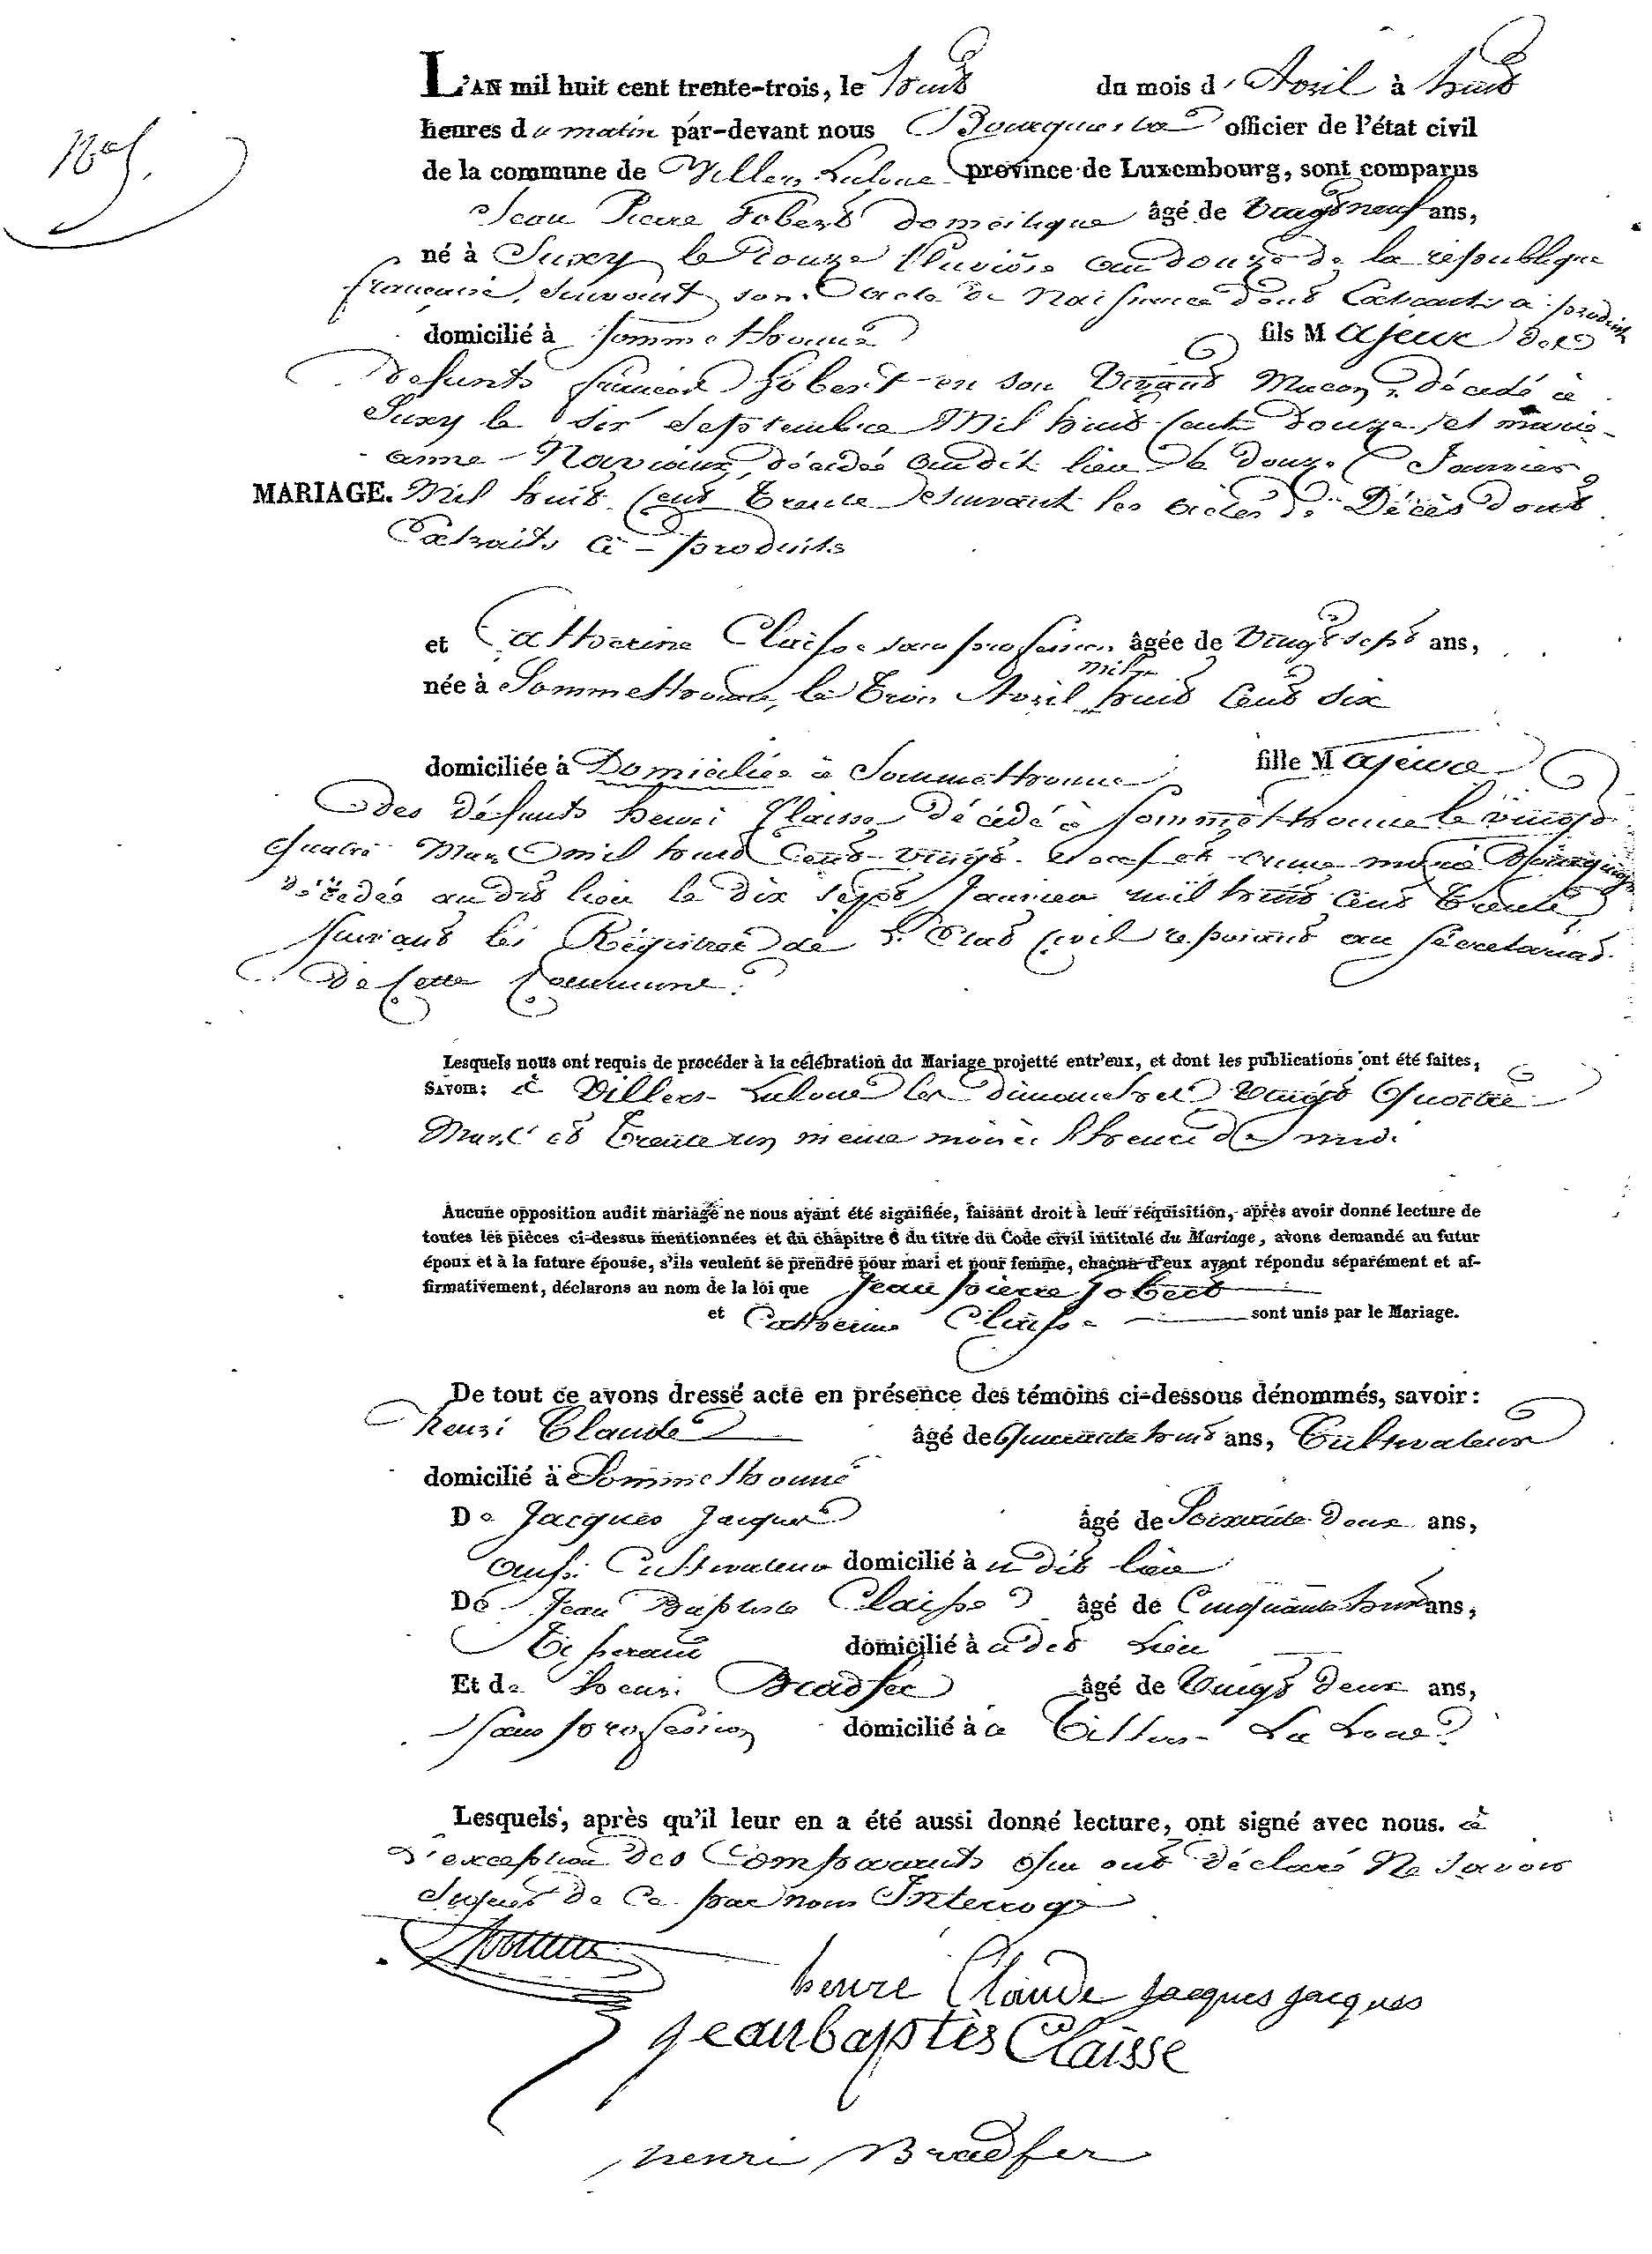 L'AN mil huit cent trente-trois, le huit du mois d'Avril à huit
heures du matin par-devant nous officier de l'état civil
de la commune de Villers Laloue province de Luxembourg, sont comparus
Jean Pierre Gobert domestique âgé de Vingt neuf ans,
né à Suxy le Douze Pluviose an douze de la république
française, suivant son acte de Naissance dont Extrait a produit
domicilié à Sommethonne fils Majeur des
defunts françois Gobert en son Vivant Macon, décédé à
Suxy le dix Septembre Mil huit Cent Douze et marie
anne Naviaux, décédée audit lieu le douze Janvier
MARIAGE. Mil huit Cent Trente suivant les actes de Décès dont
Extraits ci-produits
et Catherine Claisse sans profession âgée de Vingt sept ans,
née à Sommethonne, le Trois Avril mil huit Cent Six
domiciliée à Domiciliée à Sommethonne fille Majeure
des défunts henri Claisse décédé à Sommethonne le vingt
quatre Mars mil huit Cent vingt neuf et anne marie
décédée au dit lieu le dix sept Janvier mil huit Cent Trente
suivant les Registres de l'Etat Civil reposant au Secretariat
de Cette Commune.
Lesquels nous ont requis de procéder à la célébration du Mariage projetté entr'eux, et dont les publications ont été faites,
SAVOIR: à Villers-Laloue les dimanches Vingt Quatre
Mars et Trente un meme mois à l'heure de midi
Aucune opposition audit mariage ne nous ayant été signifiée, faisant droit à leur réquisition, après avoir donné lecture de
toutes les pièces ci-dessus mentionnées et du chapitre 6 du titre du Code civil intitulé du Mariage, avons demandé au futur
époux et à la future épouse, s'ils veulent se prendre pour mari et pour femme, chacun d'eux ayant répondu séparément et af-
firmativement, déclarons au nom de la loi que Jean pierre Gobert
et Catherine Claisse sont unis par le Mariage.
De tout ce avons dressé acte en présence des témoins ci-dessous dénommés, savoir:
henri Claude âgé de Quarante huit ans, Cultivateur
domicilié à Sommethonne
De Jacques Jacques âgé de Soixante Deux ans,
aussi Cultivateur domicilié à u dit lieu
De Jean Baptiste Claisse âgé de Cinquante huit ans,
Tisserand domicilié à u dit Lieu
Et de henri Bradfer âgé de Vingt Deux ans,
Sans profession domicilié à a Villers La Loue
Lesquels, après qu'il leur en a été aussi donné lecture, ont signé avec nous. à
l'exception des Comparants qui ont déclaré Ne Savoir
Signer de Ce par nous Interrogé
henri Claude Jacques jacques
jeanbaptiès Claisse
henri Bradfer